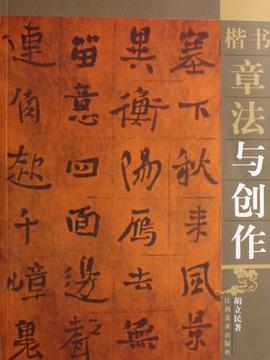 楷书
章法与创作
胡立民著
江西美术出版社
塞下秋来風景
異衡陽雁去無
留意四面邊聲
連角起千嶂裏